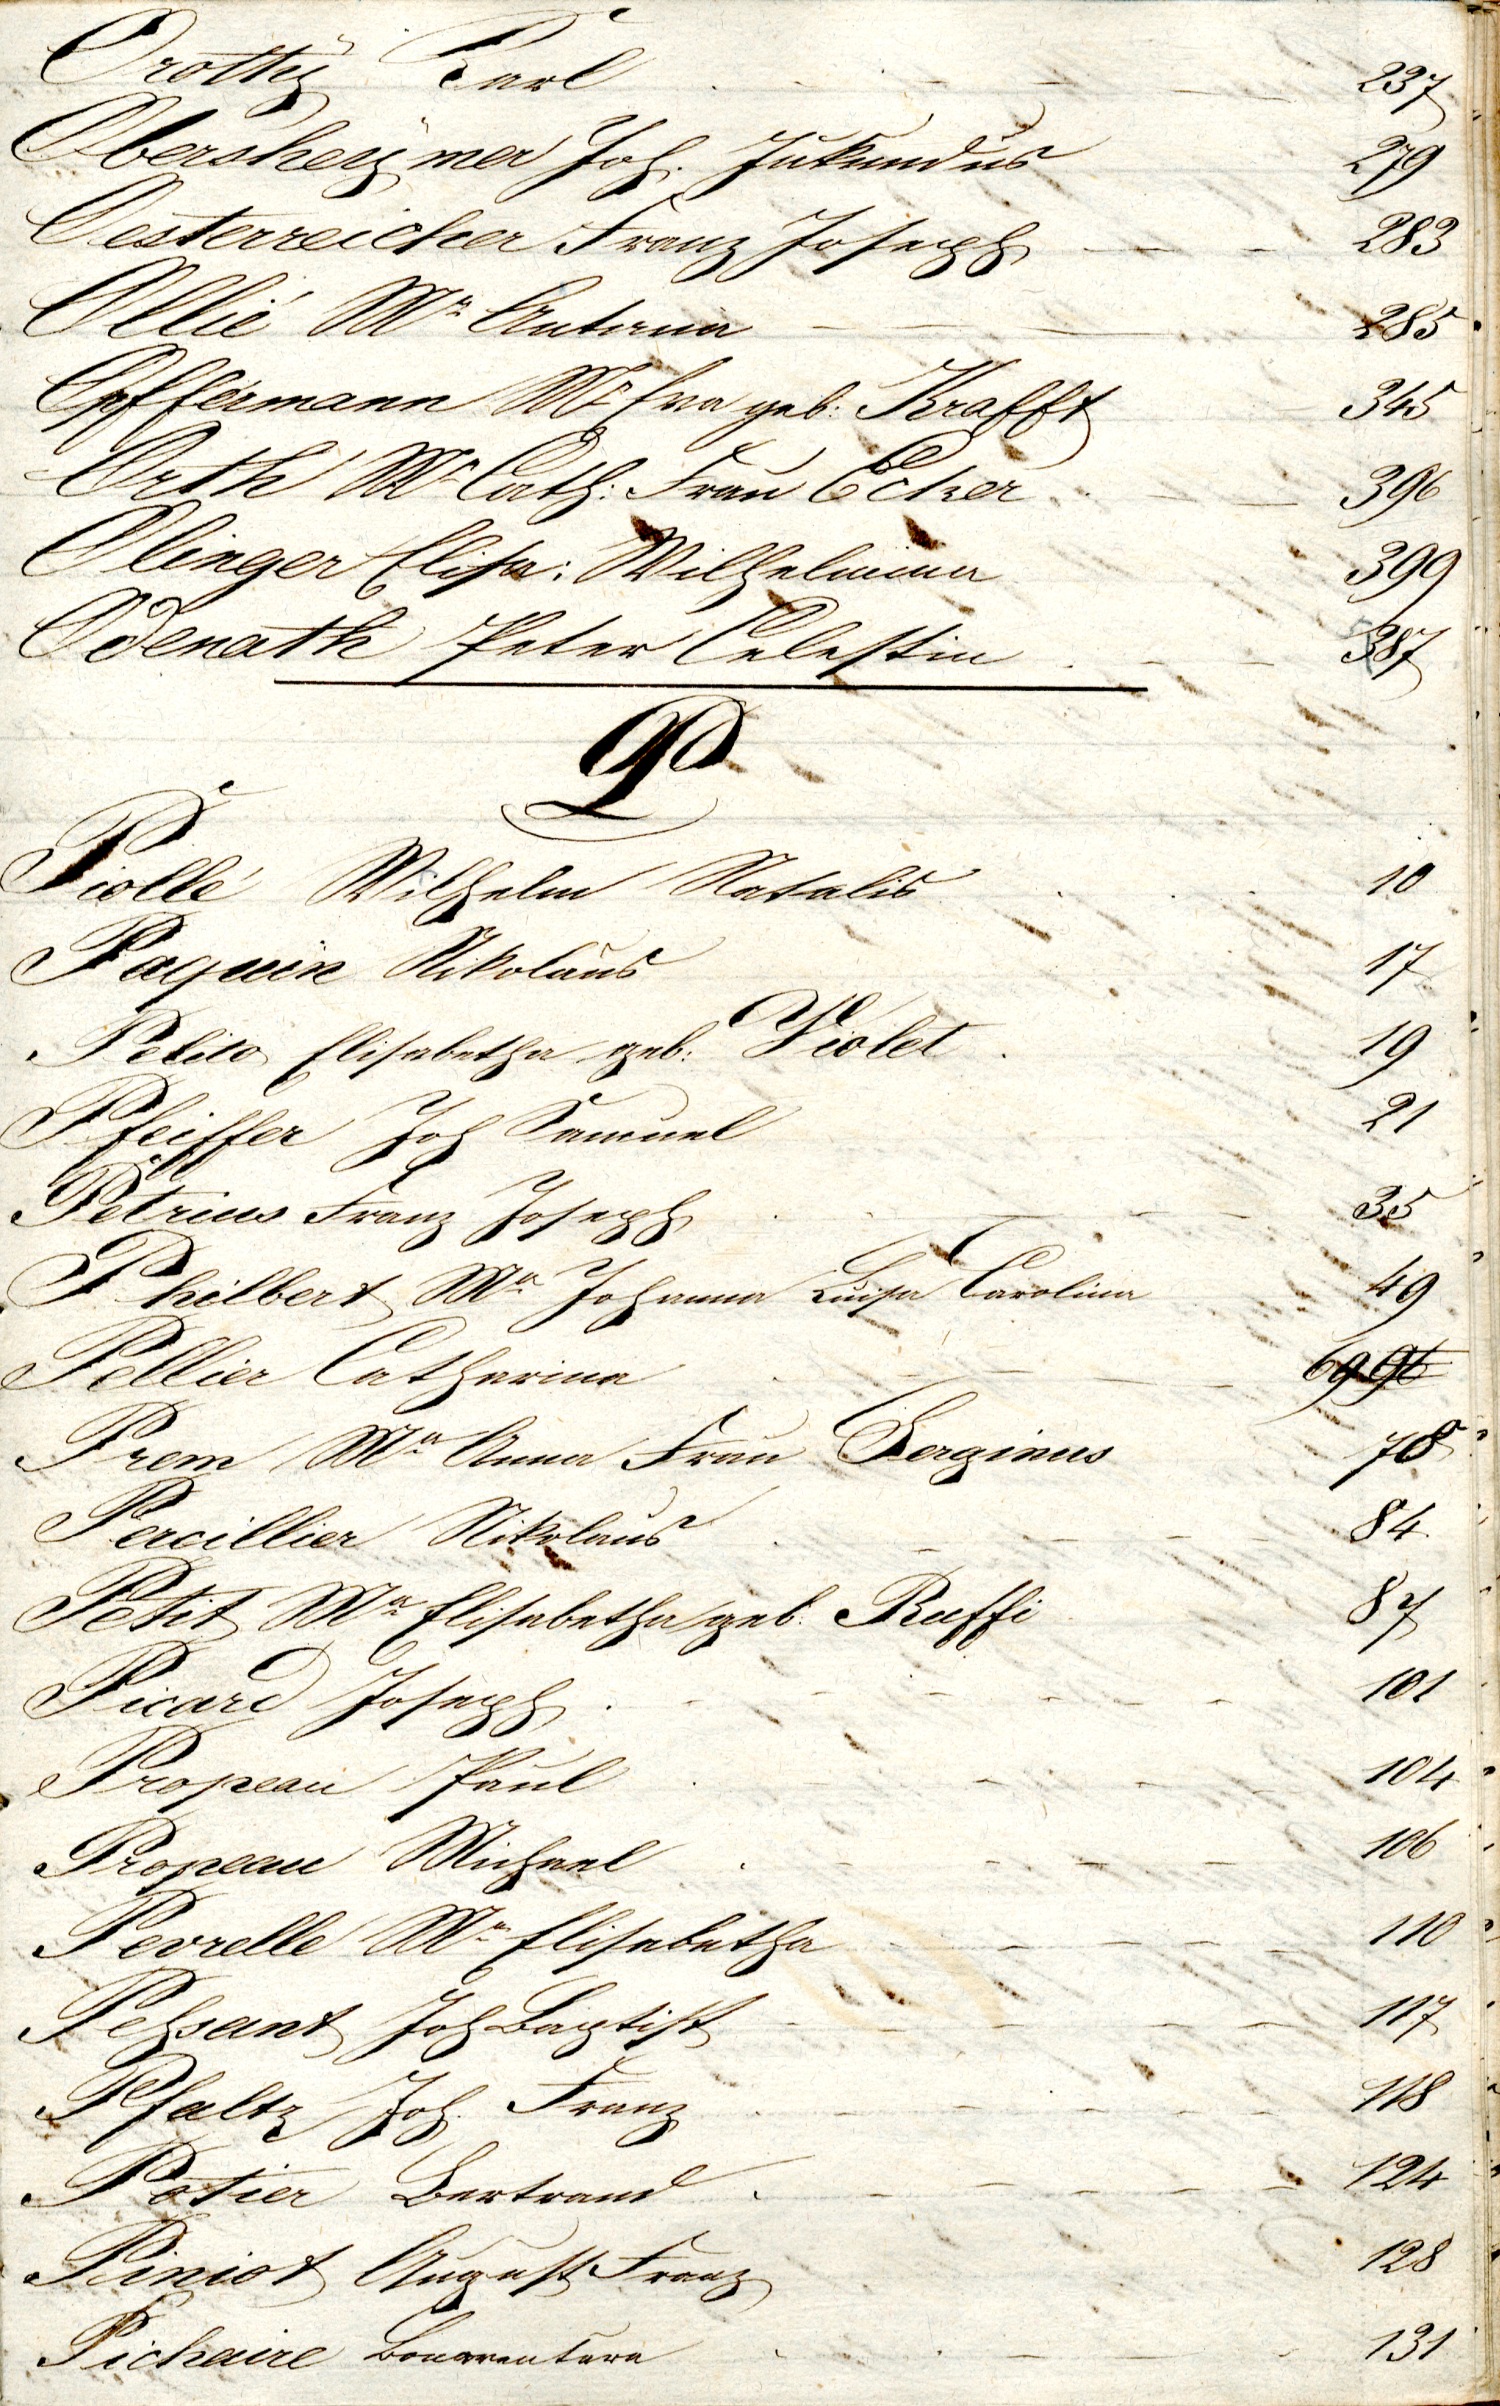 Orottÿ Carl 237
Obersheÿmer Joh. Jukundus 279
Oesterreicher Franz Joseph 283
Ollié Mᵃ Antonia 285
Opffermann Mᵃ Eva geb: Krafft 345
Orth Mᵃ Cath: Frau Ecker 396
Olinger Elisa: Wilhelmina 399
Odenath Peter Celestin 387
P
Piollé Wilhelm Natalis 10
Paquin Nikolaus 17
Petito Elisabetha geb: Violet 19
Pfeiffer Joh Samuel 21
Petrius Franz Joseph 35
Philbert Mᵃ Johanna Luisa Carolina 49
Pellier Catharina 69 96
Prem Mᵃ Anna Frau Serginus 78
Percillier Nikolaus 84
Petit Mᵃ Elisabetha geb. Ruffi 87
Picard Joseph 101
Propeau Paul 104
Propeau Michael 106
Pevrelle Mᵃ Elisabetha 110
Joh Baptist 117
Pfaltz Joh. Franz 118
Potier Bertrand 124
Piniot August Franz 128
Pichaire Bonaventura 131